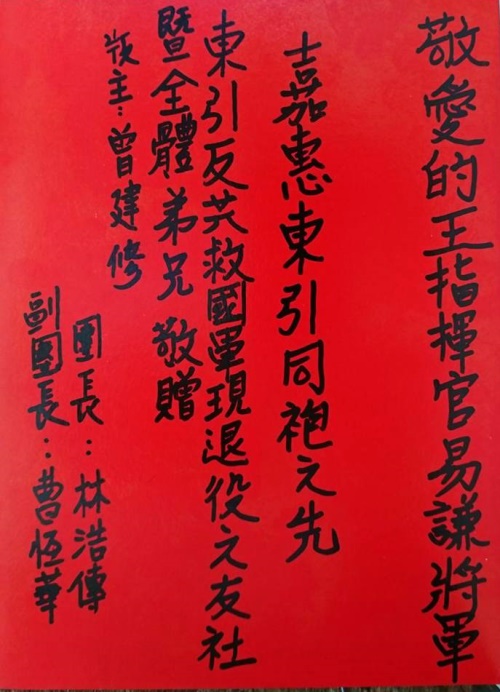 敬愛的王指揮官易謙將軍
嘉惠東引同袍之先
東引反共救國軍現退役之友社
暨全體弟兄敬贈
版主：曾建修
團長：林浩傳
副團長：曹恒華